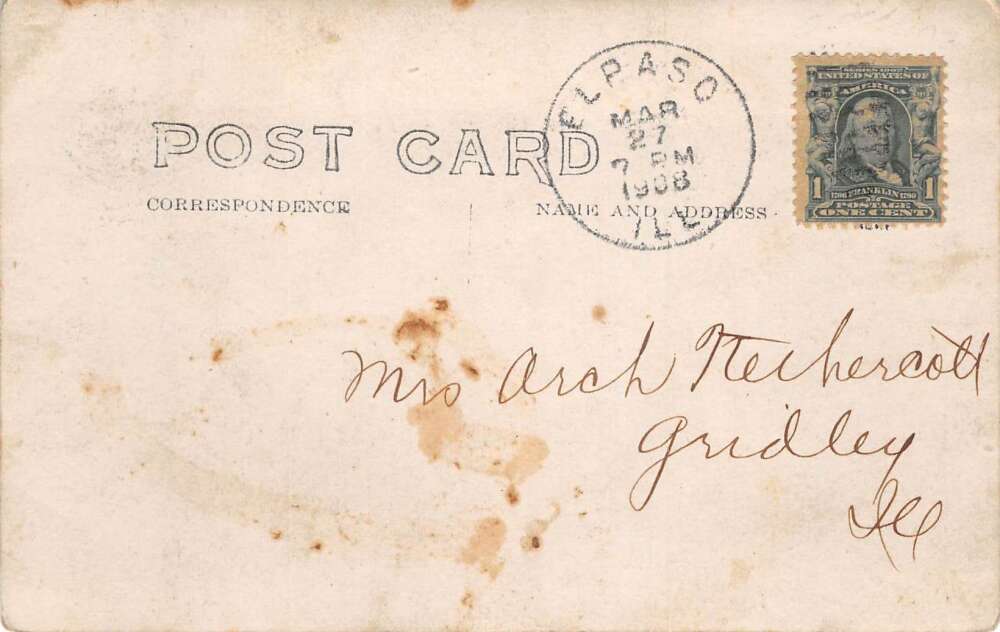 POST CARD
CORRESPONDENCE
NAME AND ADDRESS
ELPASO
MAR
27
7 PM
1908
ILL
SERIES 1902
UNITED STATES OF
AMERICA
1 1706 FRANKLIN 1790 1
POSTAGE
ONE CENT
Mrs Arch Nethercott
Gridley
Ill